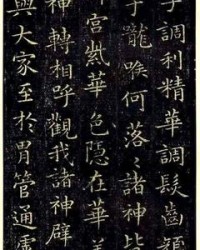 子調利精華調髮齒顏
于嚨喉何落落諸神皆
宮紫華色隱在華蓋
神轉相呼觀我諸神辟
與大家至於胃管通虛